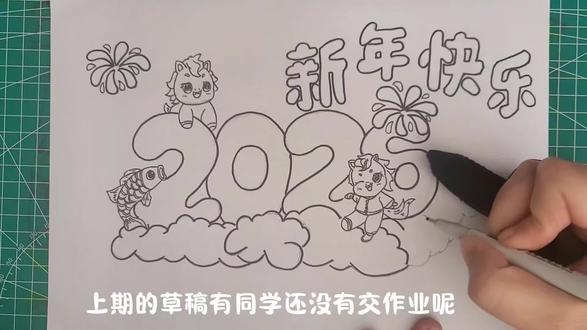 新年快乐
2026
上期的草稿有同学还没有交作业呢